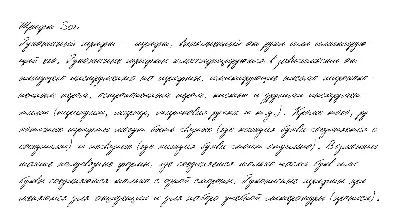 Шрифт Эсп.
Рукописный шрифт — шрифт, выполненный от руки или имитирую
щий его. Рукописные шрифты классифицируются в зависимости от
имитации инструмента на шрифты, имитирующие письмо ширококо
нечным пером, остроконечным пером, кистью и другими инструмен
тами (карандаш, маркер, шариковая ручка и т.д.). Кроме того, ру
кописные шрифты могут быть связные (где каждая буква соединяется с
соседними) и несвязные (где каждая буква стоит отдельно). Возможны
также переходные формы, где соединяется только часть букв или
буквы соединяются только с одной стороны. Рукописные шрифты при
меняются для акциденции и для набора учебной литературы (прописи).